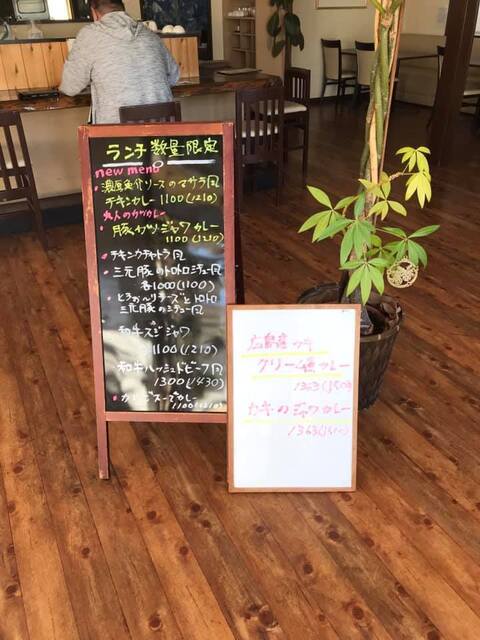 ランチ数量限定
new menu
・濃厚魚介ソースのマサラ風
チキンカレー1100(1210)
大人のカツカレー
・豚カツジャワカレー
1100(1210)
・チキンカチャトラ風
・三元豚のトロトロシチュー風
各1000(1100)
・とろ〜りチーズとトロトロ
三元豚のシチュー風
和牛スジジャワ
1100(1210)
・和牛ハッシュドビーフ風
1300(1430)
1100(1210)
広島産カキ
クリーム風カレー
カキのジャワカレー